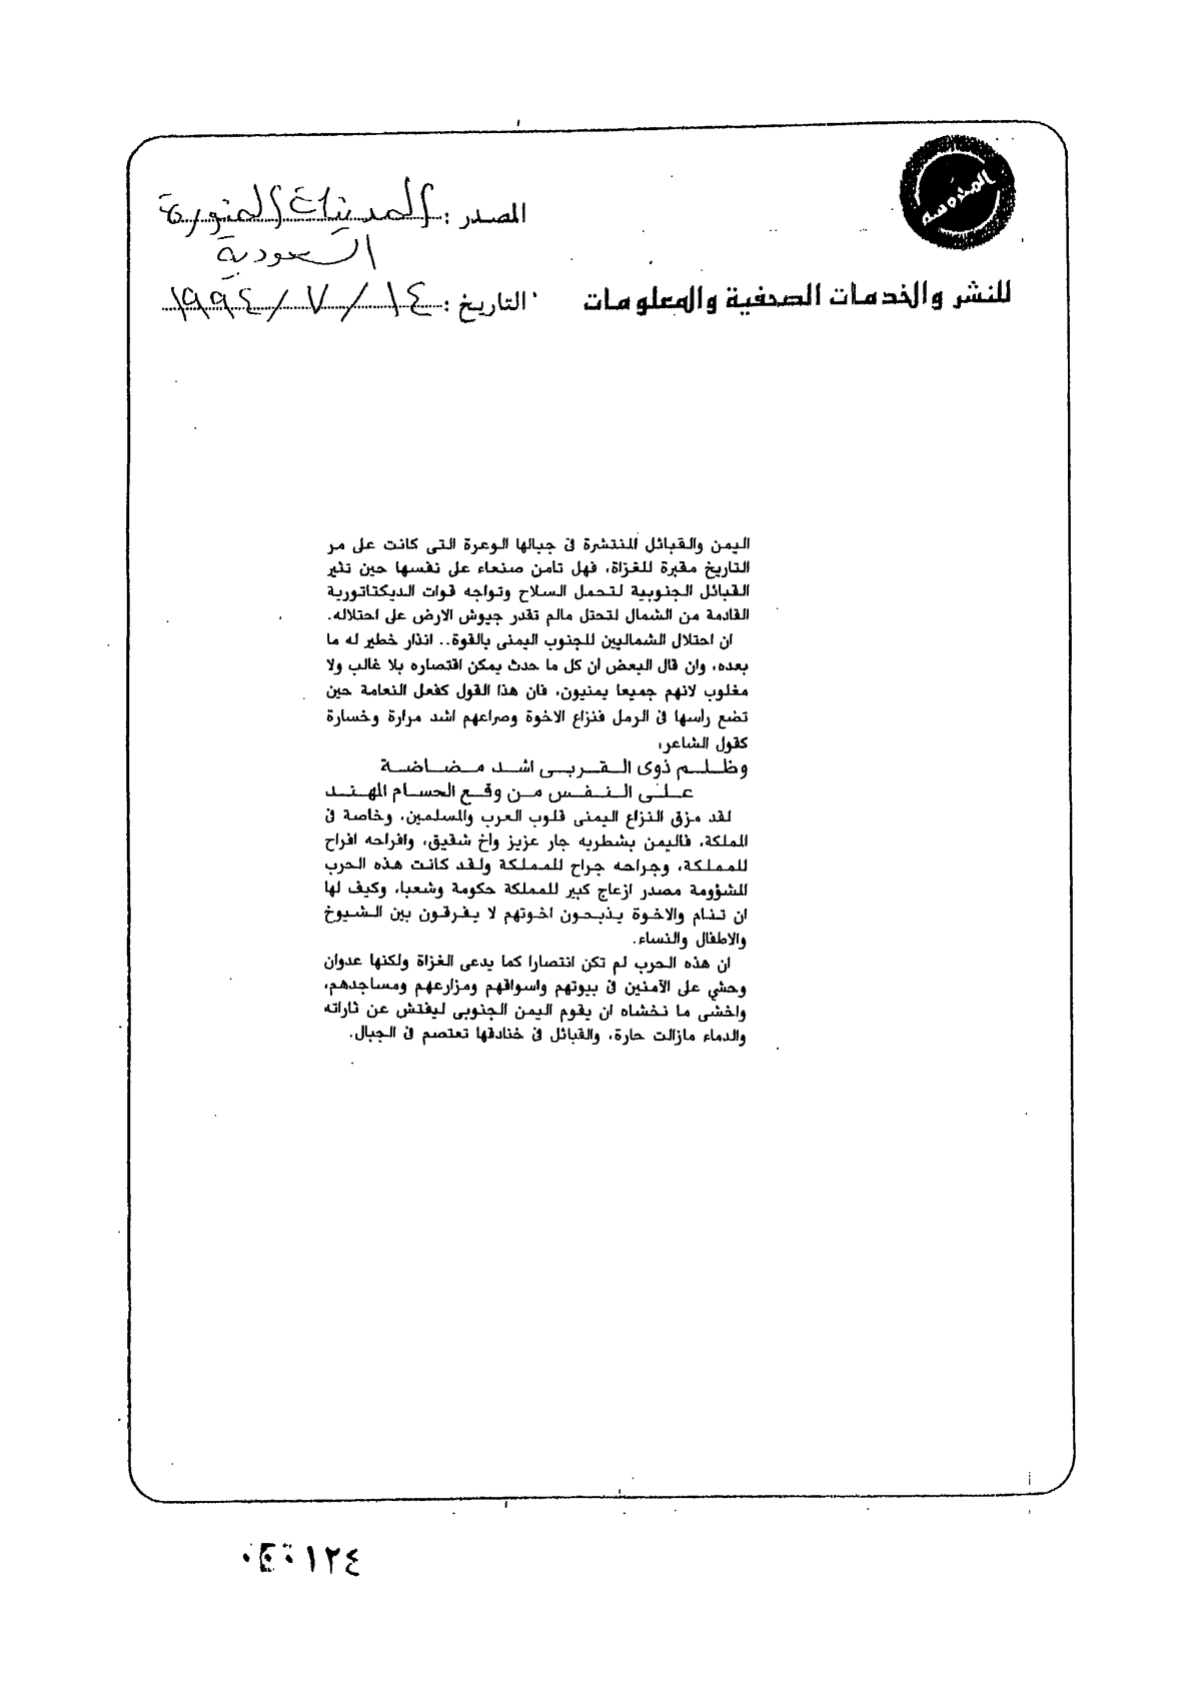 المحروسة
المصدر : المدينة المنورة
السعودية
للنشر والخدمات الصحفية والمعلومات
التاريخ : ١٤ / ٧ / ١٩٩٤
اليمن والقبائل المنتشرة فى جبالها الوعرة التى كانت على مر
التاريخ مقبرة للغزاة، فهل تامن صنعاء على نفسها حين تثير
القبائل الجنوبية لتحمل السلاح وتواجه قوات الديكتاتورية
القادمة من الشمال لتحتل مالم تقدر جيوش الارض على احتلاله.
ان احتلال الشماليين للجنوب اليمنى بالقوة.. انذار خطير له ما
بعده، وان قال البعض أن كل ما حدث يمكن اقتصاره بلا غالب ولا
مغلوب لانهم جميعا يمنيون، فان هذا القول كفعل النعامة حين
تضع رأسها فى الرمل فنزاع الاخوة وصراعهم اشد مرارة وخسارة
كقول الشاعر:
وظلم ذوى القربى اشد مضاضة
على النفس من وقع الحسام المهند
لقد مزق النزاع اليمنى قلوب العرب والمسلمين، وخاصة فى
المملكة، فاليمن بشطريه جار عزيز واخ شقيق، وافراحه افراح
للمملكة، وجراحه جراح للمملكة ولقد كانت هذه الحرب
المشؤومة مصدر ازعاج كبير للمملكة حكومة وشعبا، وكيف لها
ان تنام والاخوة يذبحون اخوتهم لا يفرقون بين الشيوخ
والاطفال والنساء.
ان هذه الحرب لم تكن انتصارا كما يدعى الغزاة ولكنها عدوان
وحشي على الآمنين فى بيوتهم واسواقهم ومزارعهم ومساجدهم،
واخشى ما نخشاه ان يقوم اليمن الجنوبى ليفتش عن ثاراته
والدماء مازالت حارة، والقبائل فى خنادقها تعتصم فى الجبال.
١٢٤